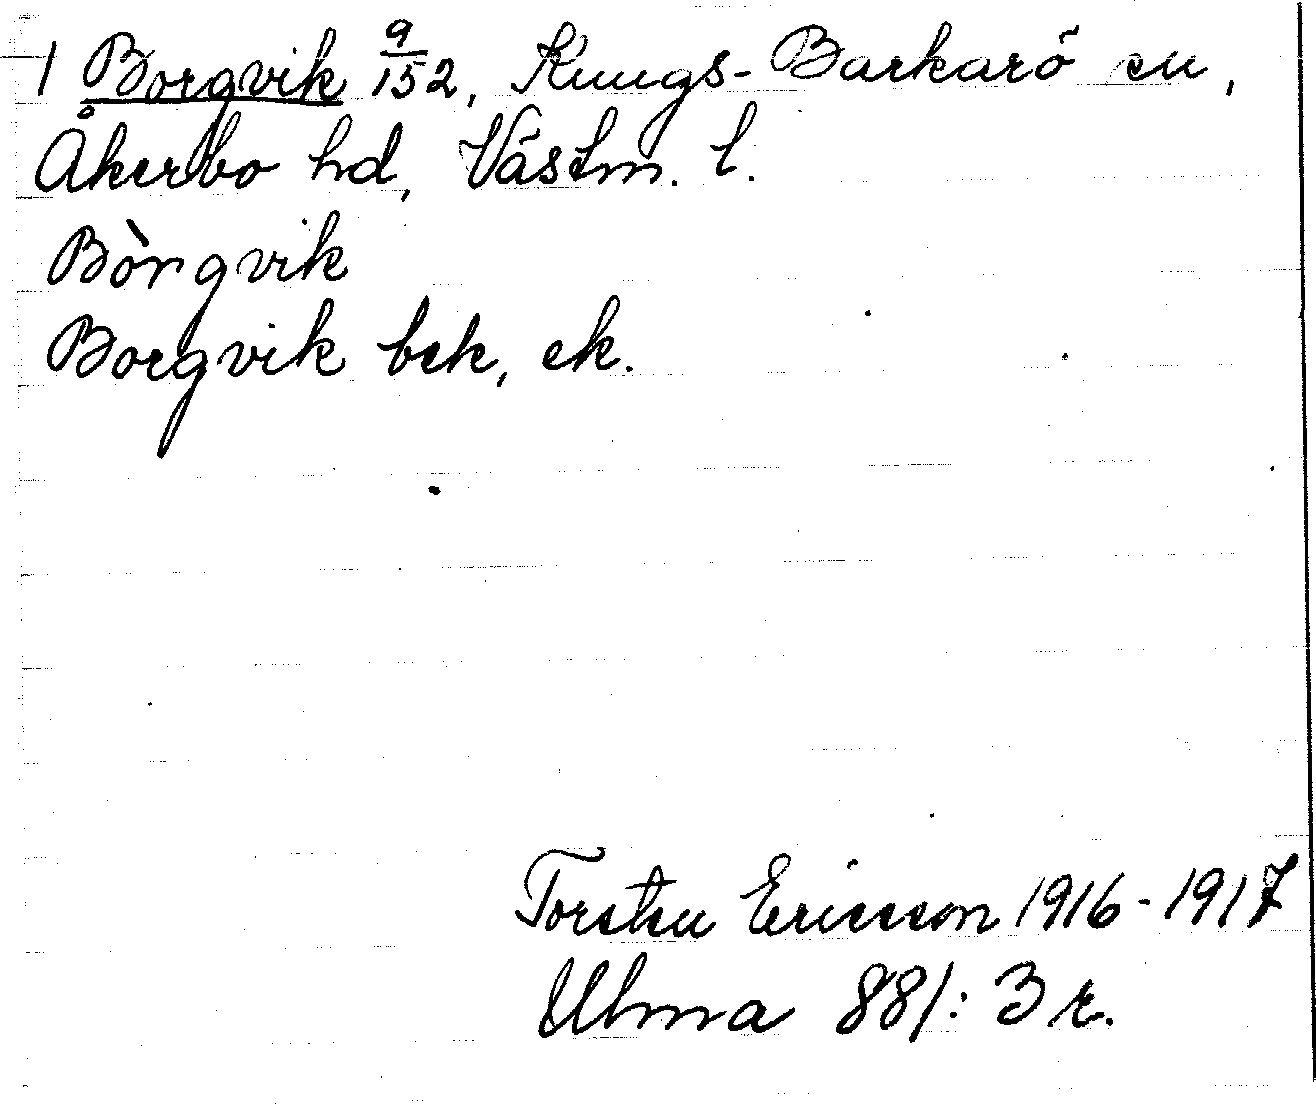 1 Borgvik 9/152, Kungs-Barkarö sn,
Åkerbo hd, Västm. l.
Bòrgvik
Borgvik bek, ek.
Torsten Ericsson 1916-1917
Ulma 881: 3 r.